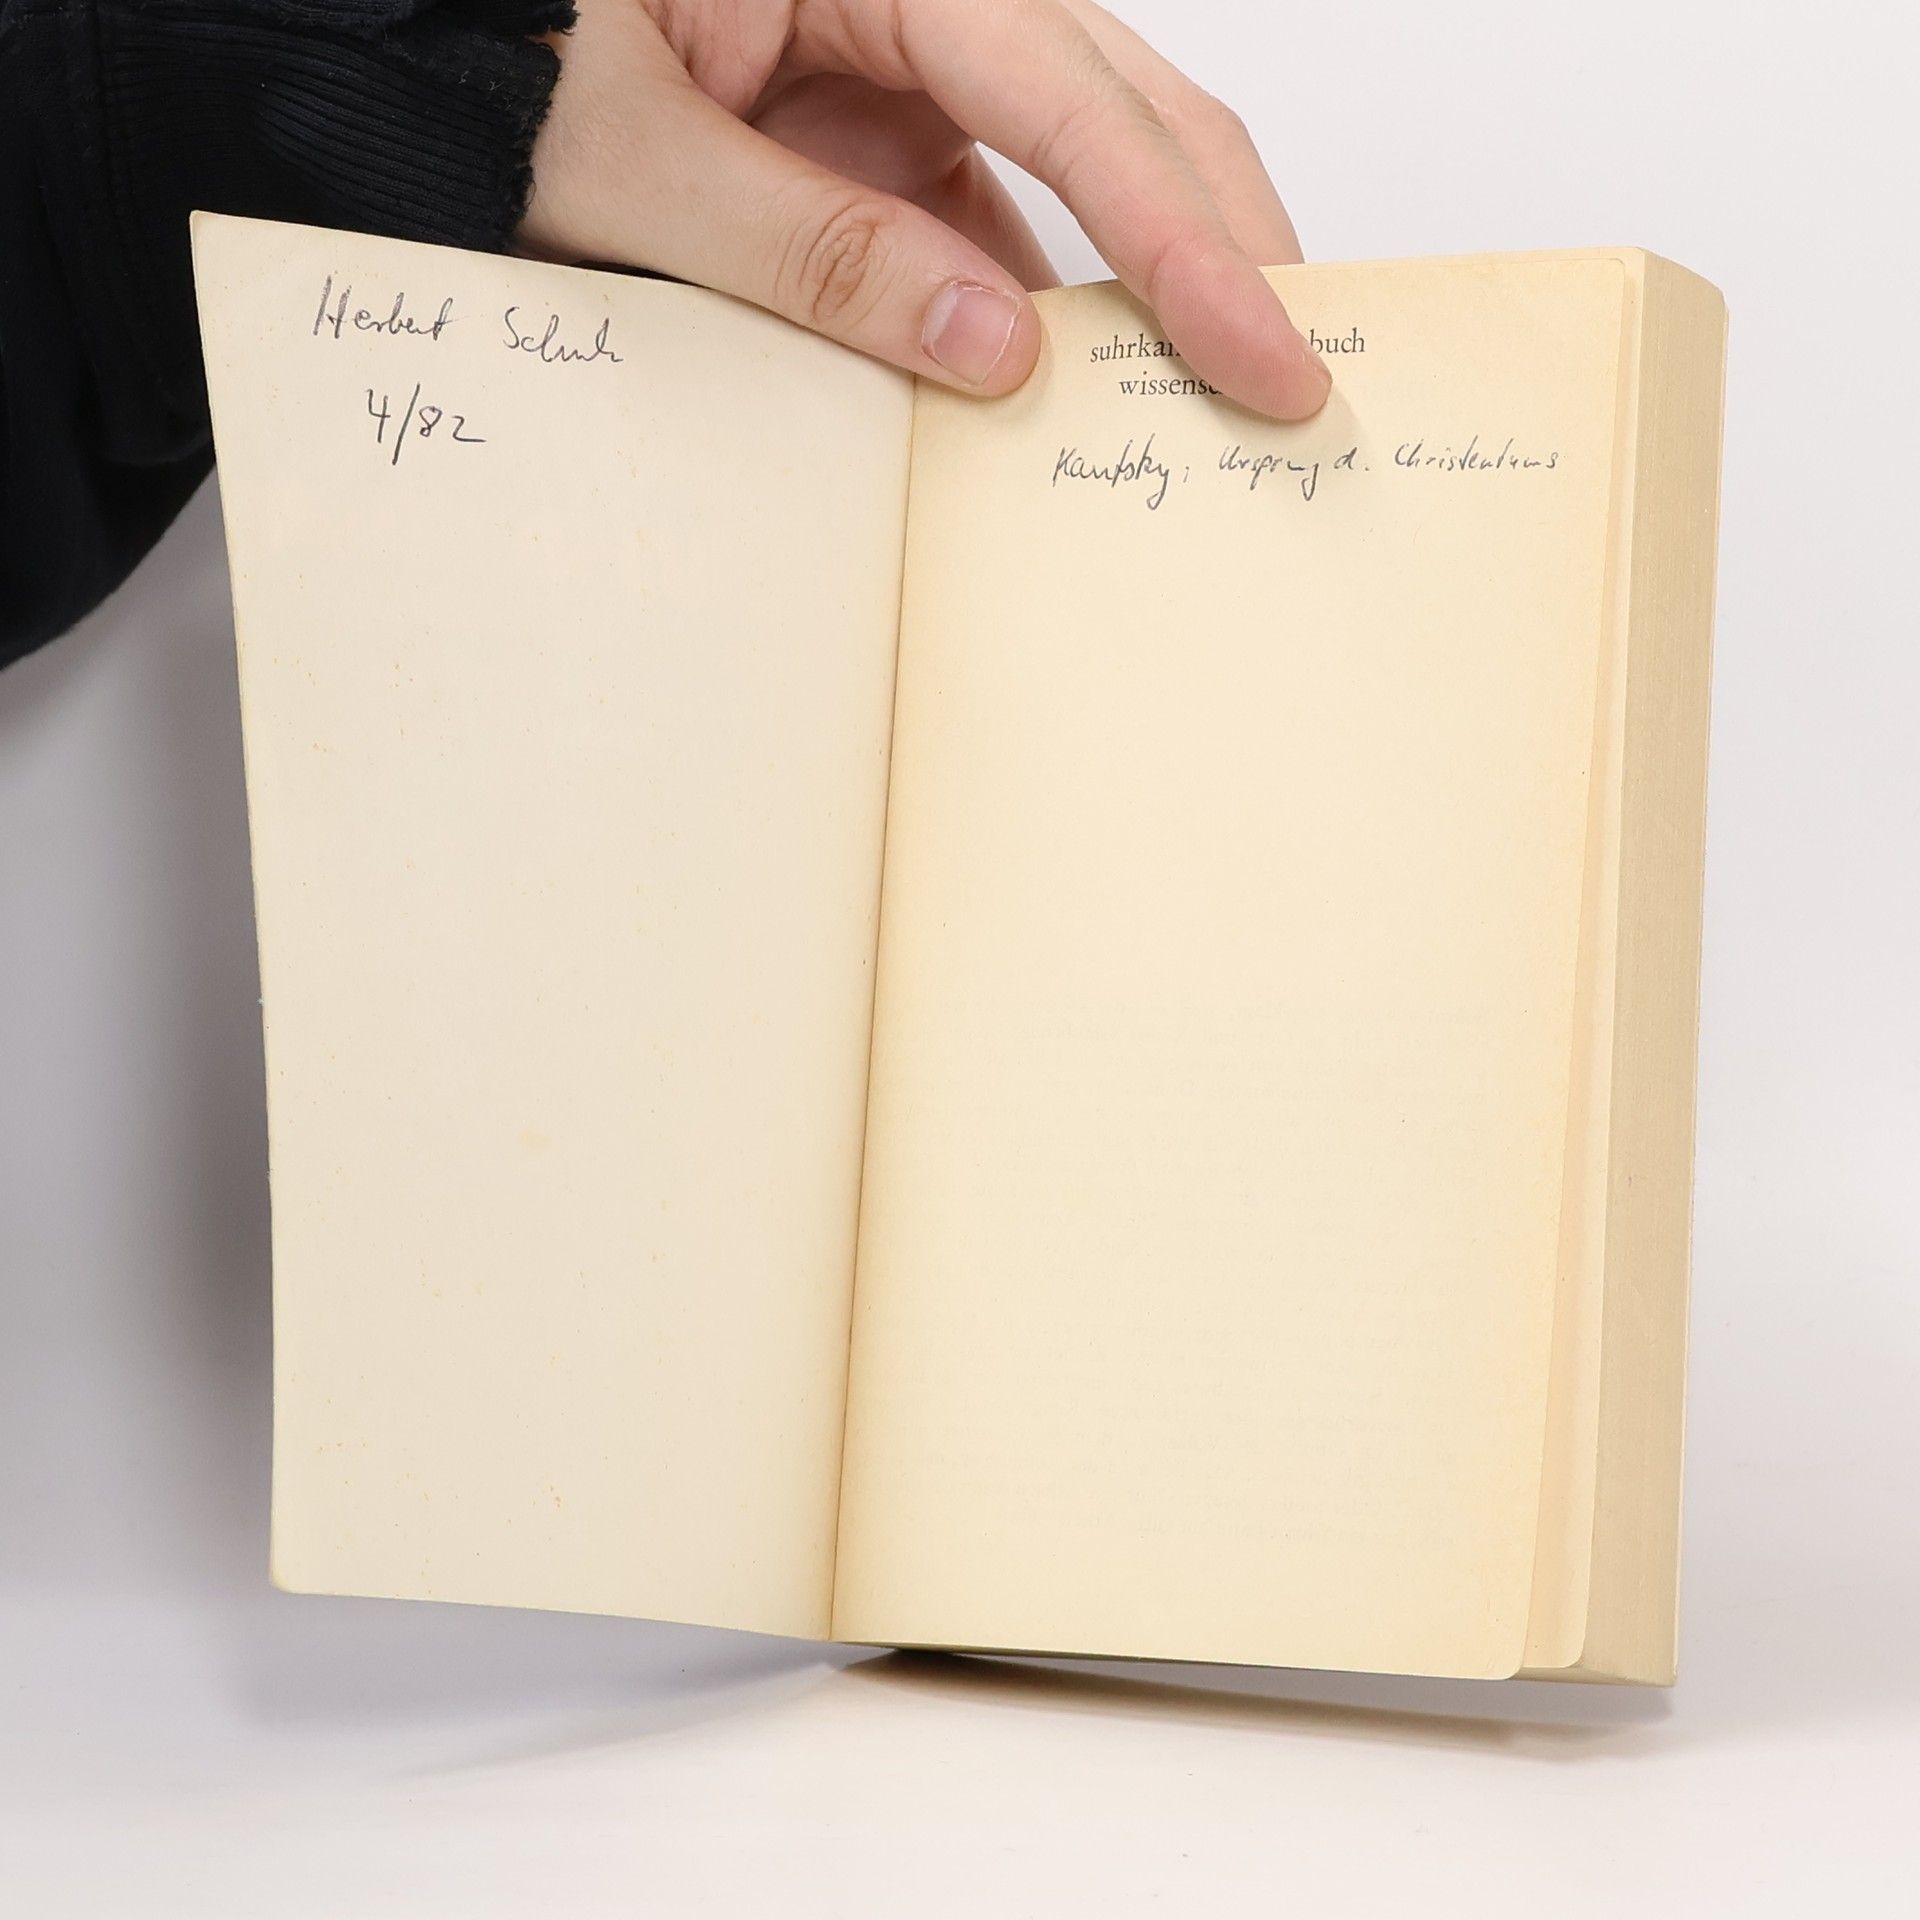 Herbert Schulz
4/82
suhrkam buch
wissensc
Kautsky, Ursprung d. Christentums